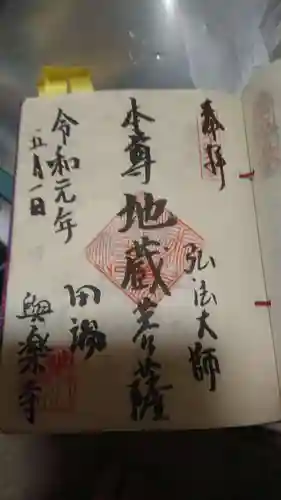 奉拝
弘法大師
本尊 地蔵菩薩
田端
興楽寺
令和元年
五月一日